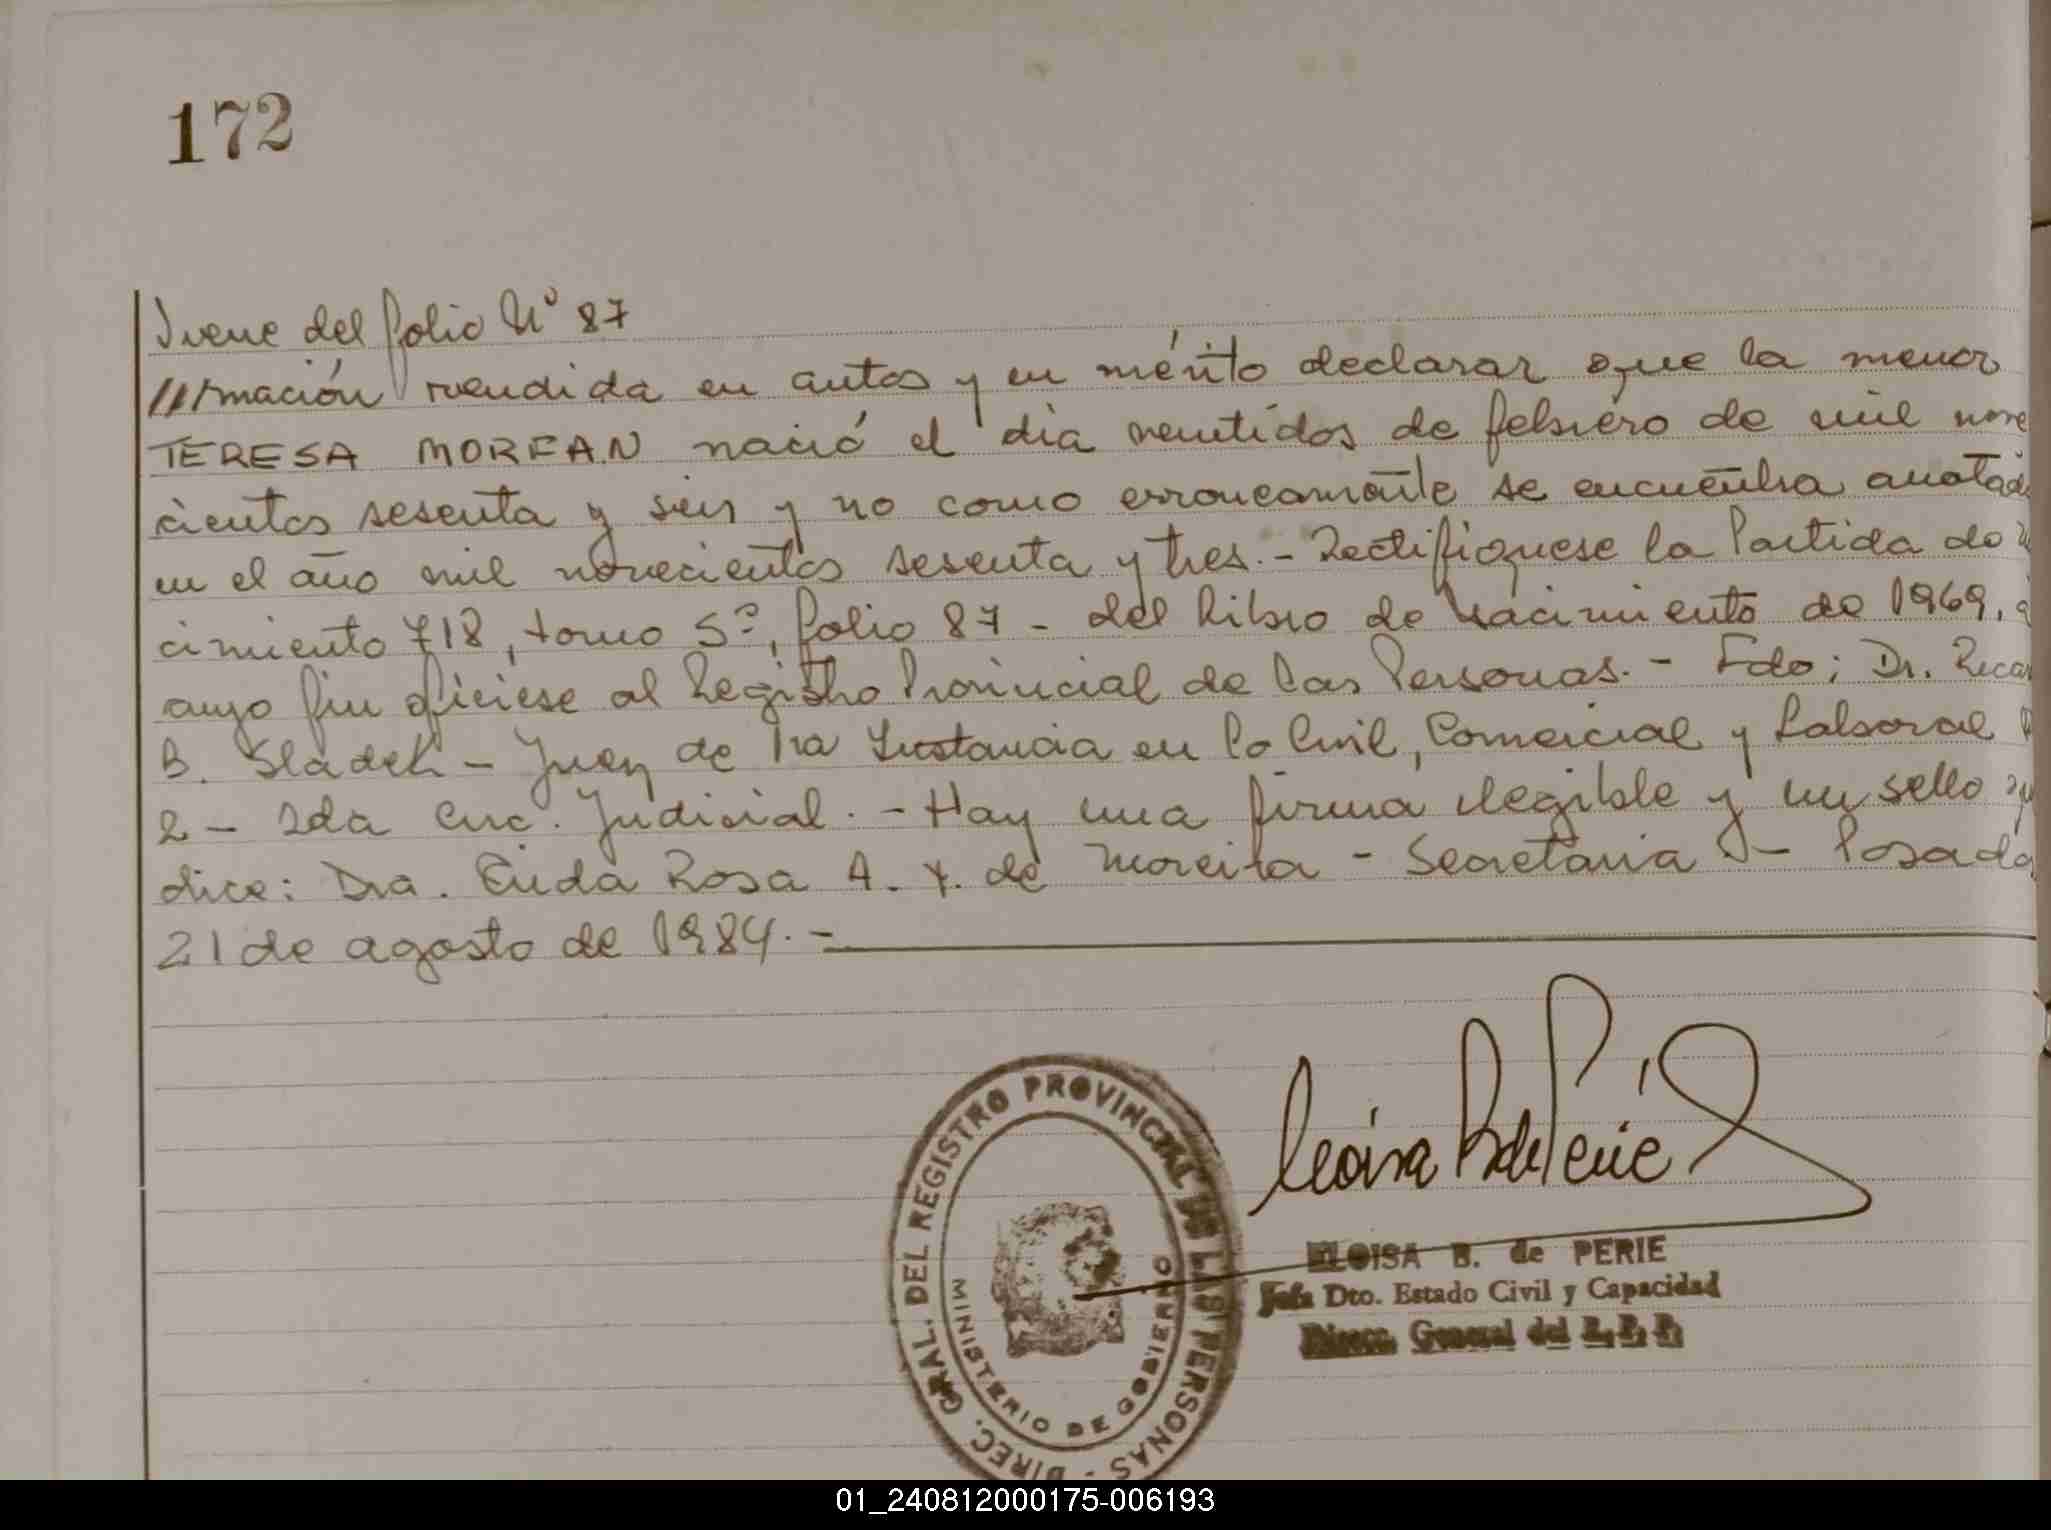 172
Viene del folio Nº 87
///rmación rendida en autos y en mérito declarar que la menor
TERESA MORFAN nació el día veintidos de febrero de mil nove
cientos sesenta y seis y no como erroneamente se encuentra anotada
en el año mil novecientos sesenta y tres.- Rectifíquese la Partida de
cimiento 718, tomo 5º, folio 87 - del Libro de Nacimiento de 1969, a
cuyo fin ofíciese al Registro Provincial de las Personas.- Fdo: Dr. Ricar
B. Sladek - Juez de 1ra Instancia en lo Civil, Comercial y Laboral
2 - 2da Circ. Judicial. - Hay una firma ilegible y un sello que
dice: Dra. Enida Rosa A. Y. de Moreira - Secretaria - Posadas
21 de agosto de 1984.-
Eloisa B de Perié
ELOISA B. de PERIE
Jefa Dto. Estado Civil y Capacidad
Direcc. General del R. P. P.
DIREC. GRAL. DEL REGISTRO PROVINCIAL DE LAS PERSONAS -
MINISTERIO DE GOBIERNO
01_240812000175-006193